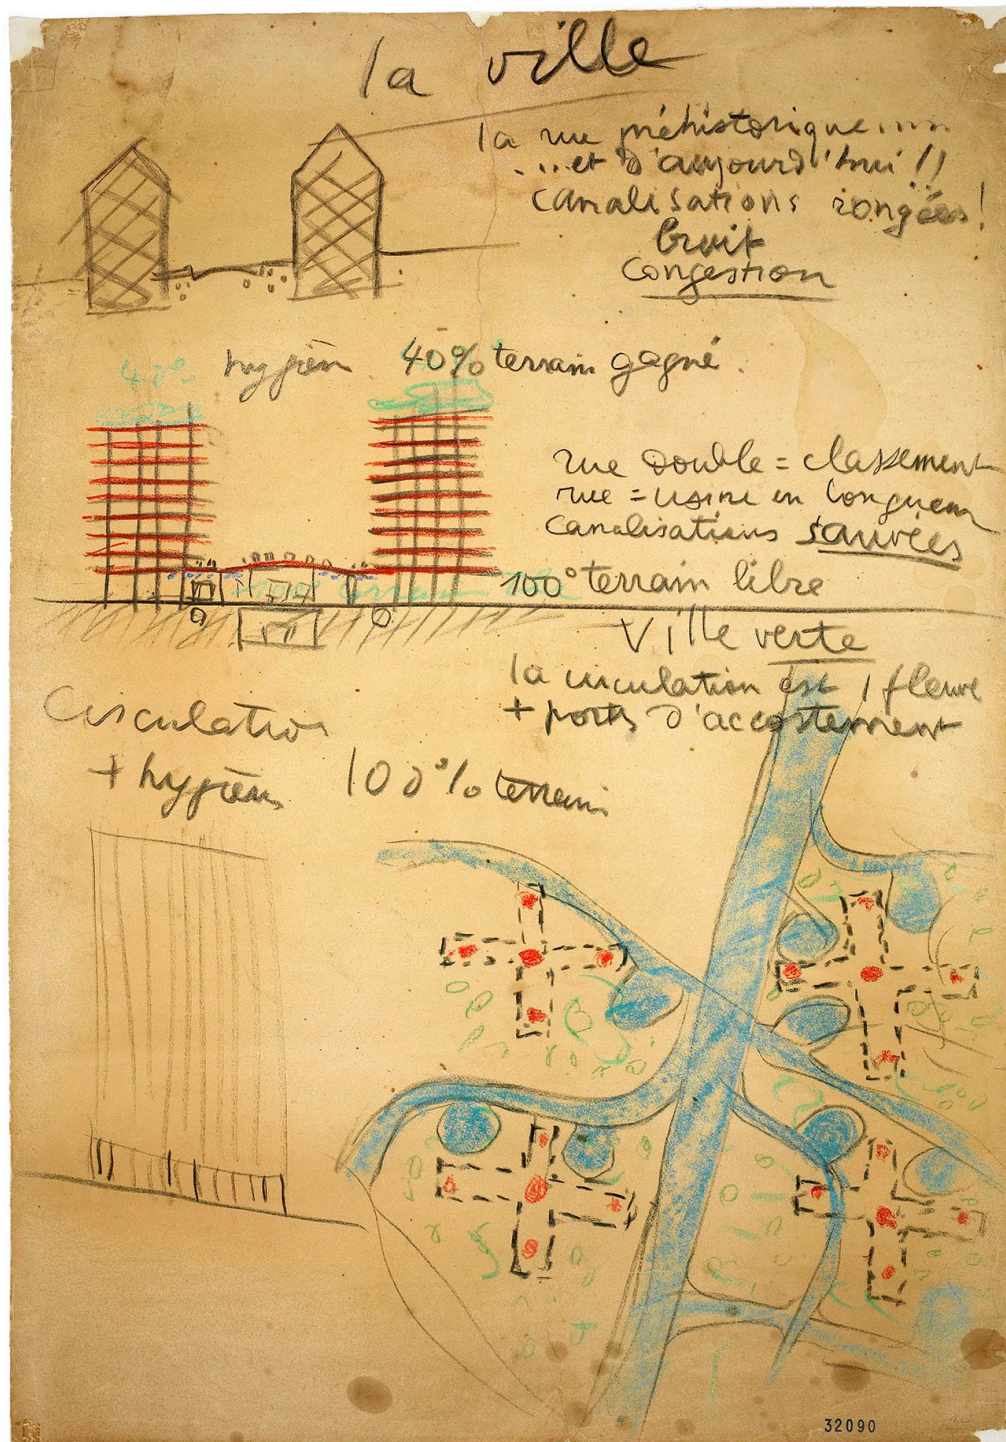 la ville
la rue préhistorique.....
....et d'aujourd'hui !!
canalisations rongées!
bruit
congestion
hygièn 40% terrain gagné.
40%
rue double = classement
rue = usine en longueur
canalisations sauvées
100° terrain libre
Ville verte
la circulation est 1 fleuve
+ ports d'accostement
Circulation
+ hygièn 100% terrain
32090